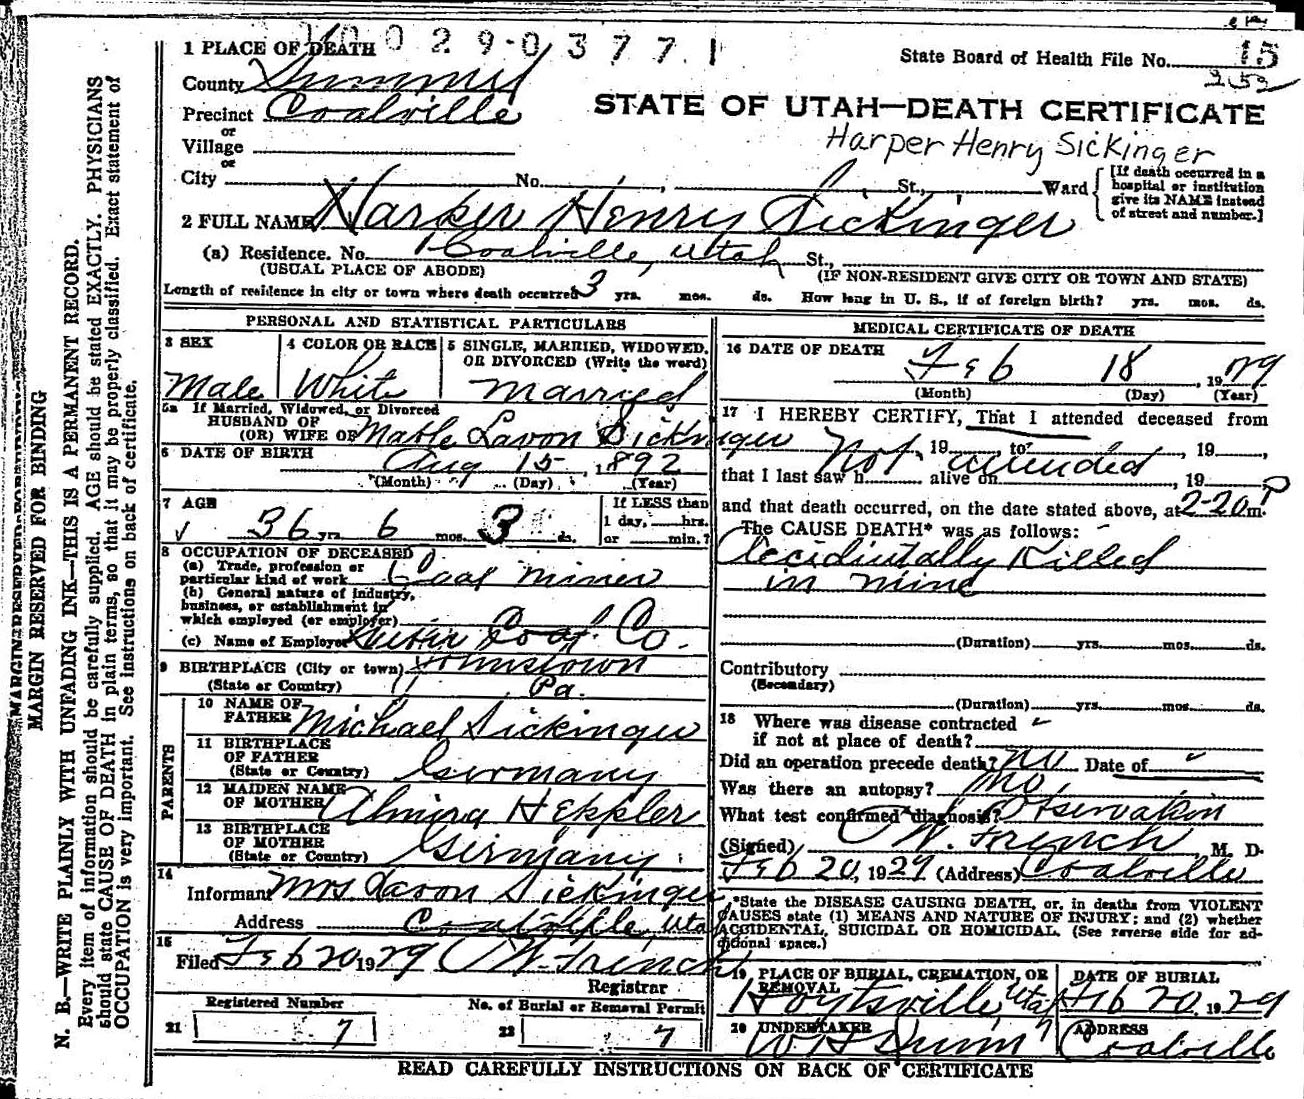 1 0 0 2 9 0 3 7 7 1
1 PLACE OF DEATH
State Board of Health File No. 15
252
County Summit
Precinct Coalville
STATE OF UTAH—DEATH CERTIFICATE
or
Village
Harper Henry Sickinger
or
City No. St., Ward
[If death occurred in a hospital or institution give its NAME instead of street and number.]
2 FULL NAME Harper Henry Sickinger
(a) Residence. No. Coalville, Utah St.,
(USUAL PLACE OF ABODE) (IF NON-RESIDENT GIVE CITY OR TOWN AND STATE)
Length of residence in city or town where death occurred 3 yrs. mos. ds. How long in U. S., if of foreign birth? yrs. mos. ds.
PERSONAL AND STATISTICAL PARTICULARS
3 SEX
Male
4 COLOR OR RACE
White
5 SINGLE, MARRIED, WIDOWED,
OR DIVORCED (Write the word)
Married
5a If Married, Widowed, or Divorced
HUSBAND OF
(OR) WIFE OF Mable Lavon Sickinger
6 DATE OF BIRTH Aug 15, 1892
(Month) (Day) (Year)
7 AGE
36 yrs. 6 mos. 3 ds.
If LESS than
1 day, hrs.
or min.?
8 OCCUPATION OF DECEASED
(a) Trade, profession or
particular kind of work Coal Miner
(b) General nature of industry,
business, or establishment in
which employed (or employer)
(c) Name of Employer Coal Co.
9 BIRTHPLACE (City or town) Johnstown
(State or Country) Pa.
PARENTS
10 NAME OF
FATHER Michael Sickinger
11 BIRTHPLACE
OF FATHER
(State or Country) Germany
12 MAIDEN NAME
OF MOTHER Almira Heppler
13 BIRTHPLACE
OF MOTHER
(State or Country) Germany
14
Informant Mrs Lavon Sickinger
Address Coalville, Utah
15
Filed Feb 20 1929 W. French
Registrar
Registered Number
21 7
No. of Burial or Removal Permit
22 7
MEDICAL CERTIFICATE OF DEATH
16 DATE OF DEATH Feb 18, 1929
(Month) (Day) (Year)
17 I HEREBY CERTIFY, That I attended deceased from
Not, 19 to attended, 19,
that I last saw h alive on, 19
and that death occurred, on the date stated above, at 2-20 P m.
The CAUSE DEATH* was as follows:
Accidintally Killed
in mine
(Duration) yrs. mos. ds.
Contributory
(Secondary)
(Duration) yrs. mos. ds.
18 Where was disease contracted
if not at place of death?
Did an operation precede death? No Date of
Was there an autopsy? No
What test confirmed diagnosis? Observation
(Signed) W. French, M. D.
Feb 20, 1929 (Address) Coalville
*State the DISEASE CAUSING DEATH, or, in deaths from VIOLENT
CAUSES state (1) MEANS AND NATURE OF INJURY; and (2) whether
ACCIDENTAL, SUICIDAL OR HOMICIDAL. (See reverse side for ad-
ditional space.)
19 PLACE OF BURIAL, CREMATION, OR
REMOVAL
Hoytsville, Utah
DATE OF BURIAL
Feb 20, 1929
20 UNDERTAKER
W H Dunn
ADDRESS
Coalville
READ CAREFULLY INSTRUCTIONS ON BACK OF CERTIFICATE
MARGIN RESERVED FOR BINDING
N. B.—WRITE PLAINLY WITH UNFADING INK—THIS IS A PERMANENT RECORD.
Every item of information should be carefully supplied. AGE should be stated EXACTLY. PHYSICIANS
should state CAUSE OF DEATH in plain terms, so that it may be properly classified. Exact statement of
OCCUPATION is very important. See instructions on back of certificate.